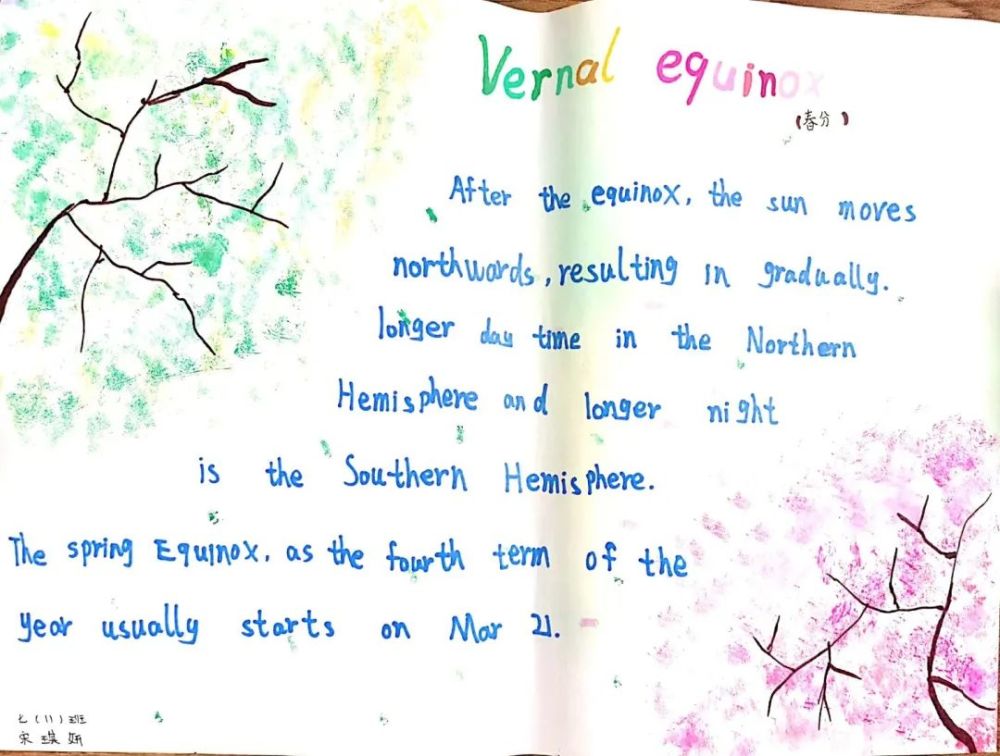 Vernal equinox
(春分)
After the equinox, the sun moves
northwords, resulting in gradually.
longer day time in the Northern
Hemisphere and longer night
is the Southern Hemisphere.
The spring Equinox, as the fourth term of the
year usually starts on Mar 21.
七(11)班
宋琪妍